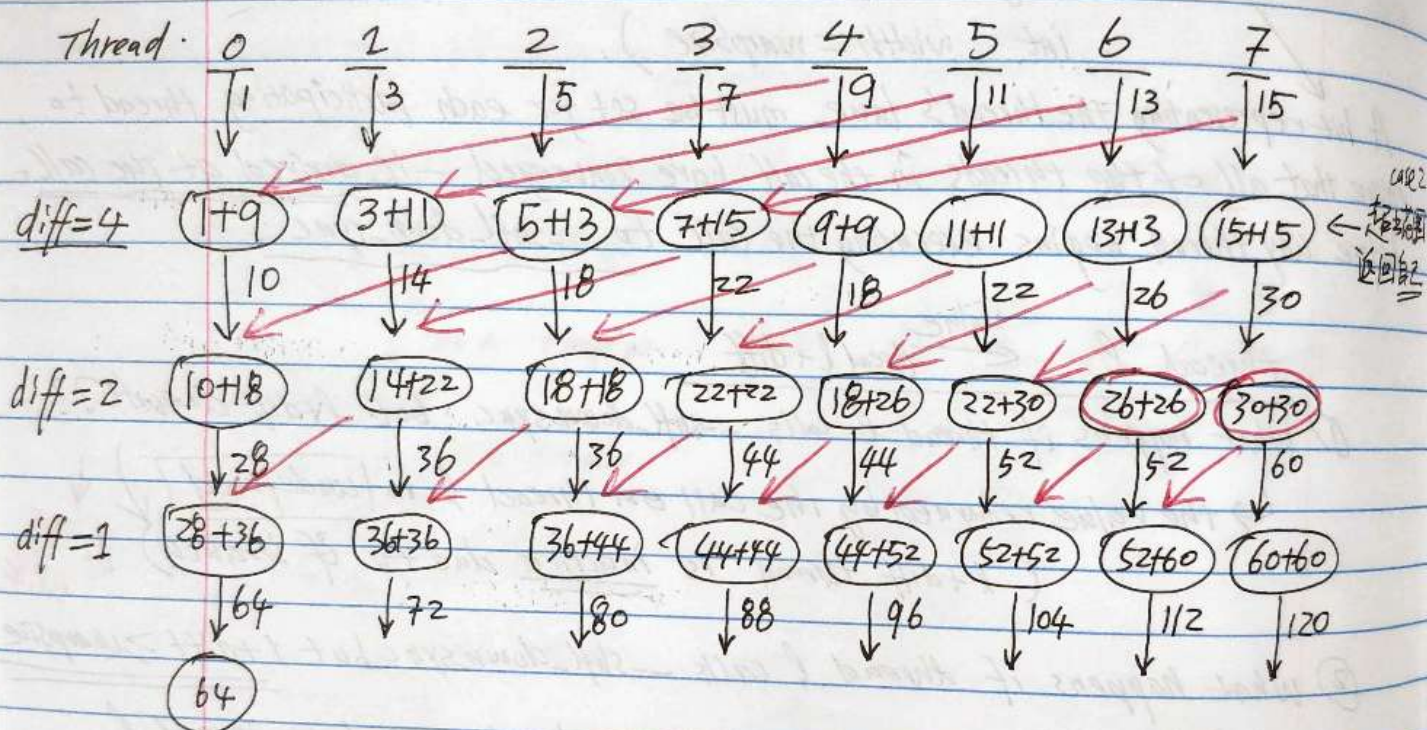 Thread. 0 1 2 3 4 5 6 7
1 3 5 7 9 11 13 15
case2
diff=4 1+9 3+11 5+13 7+15 9+9 11+11 13+13 15+15 ← 超出范围
返回自己
10 14 18 22 18 22 26 30
diff=2 10+18 14+22 18+18 22+22 18+26 22+30 26+26 30+30
28 36 36 44 44 52 52 60
diff=1 28+36 36+36 36+44 44+44 44+52 52+52 52+60 60+60
64 72 80 88 96 104 112 120
64